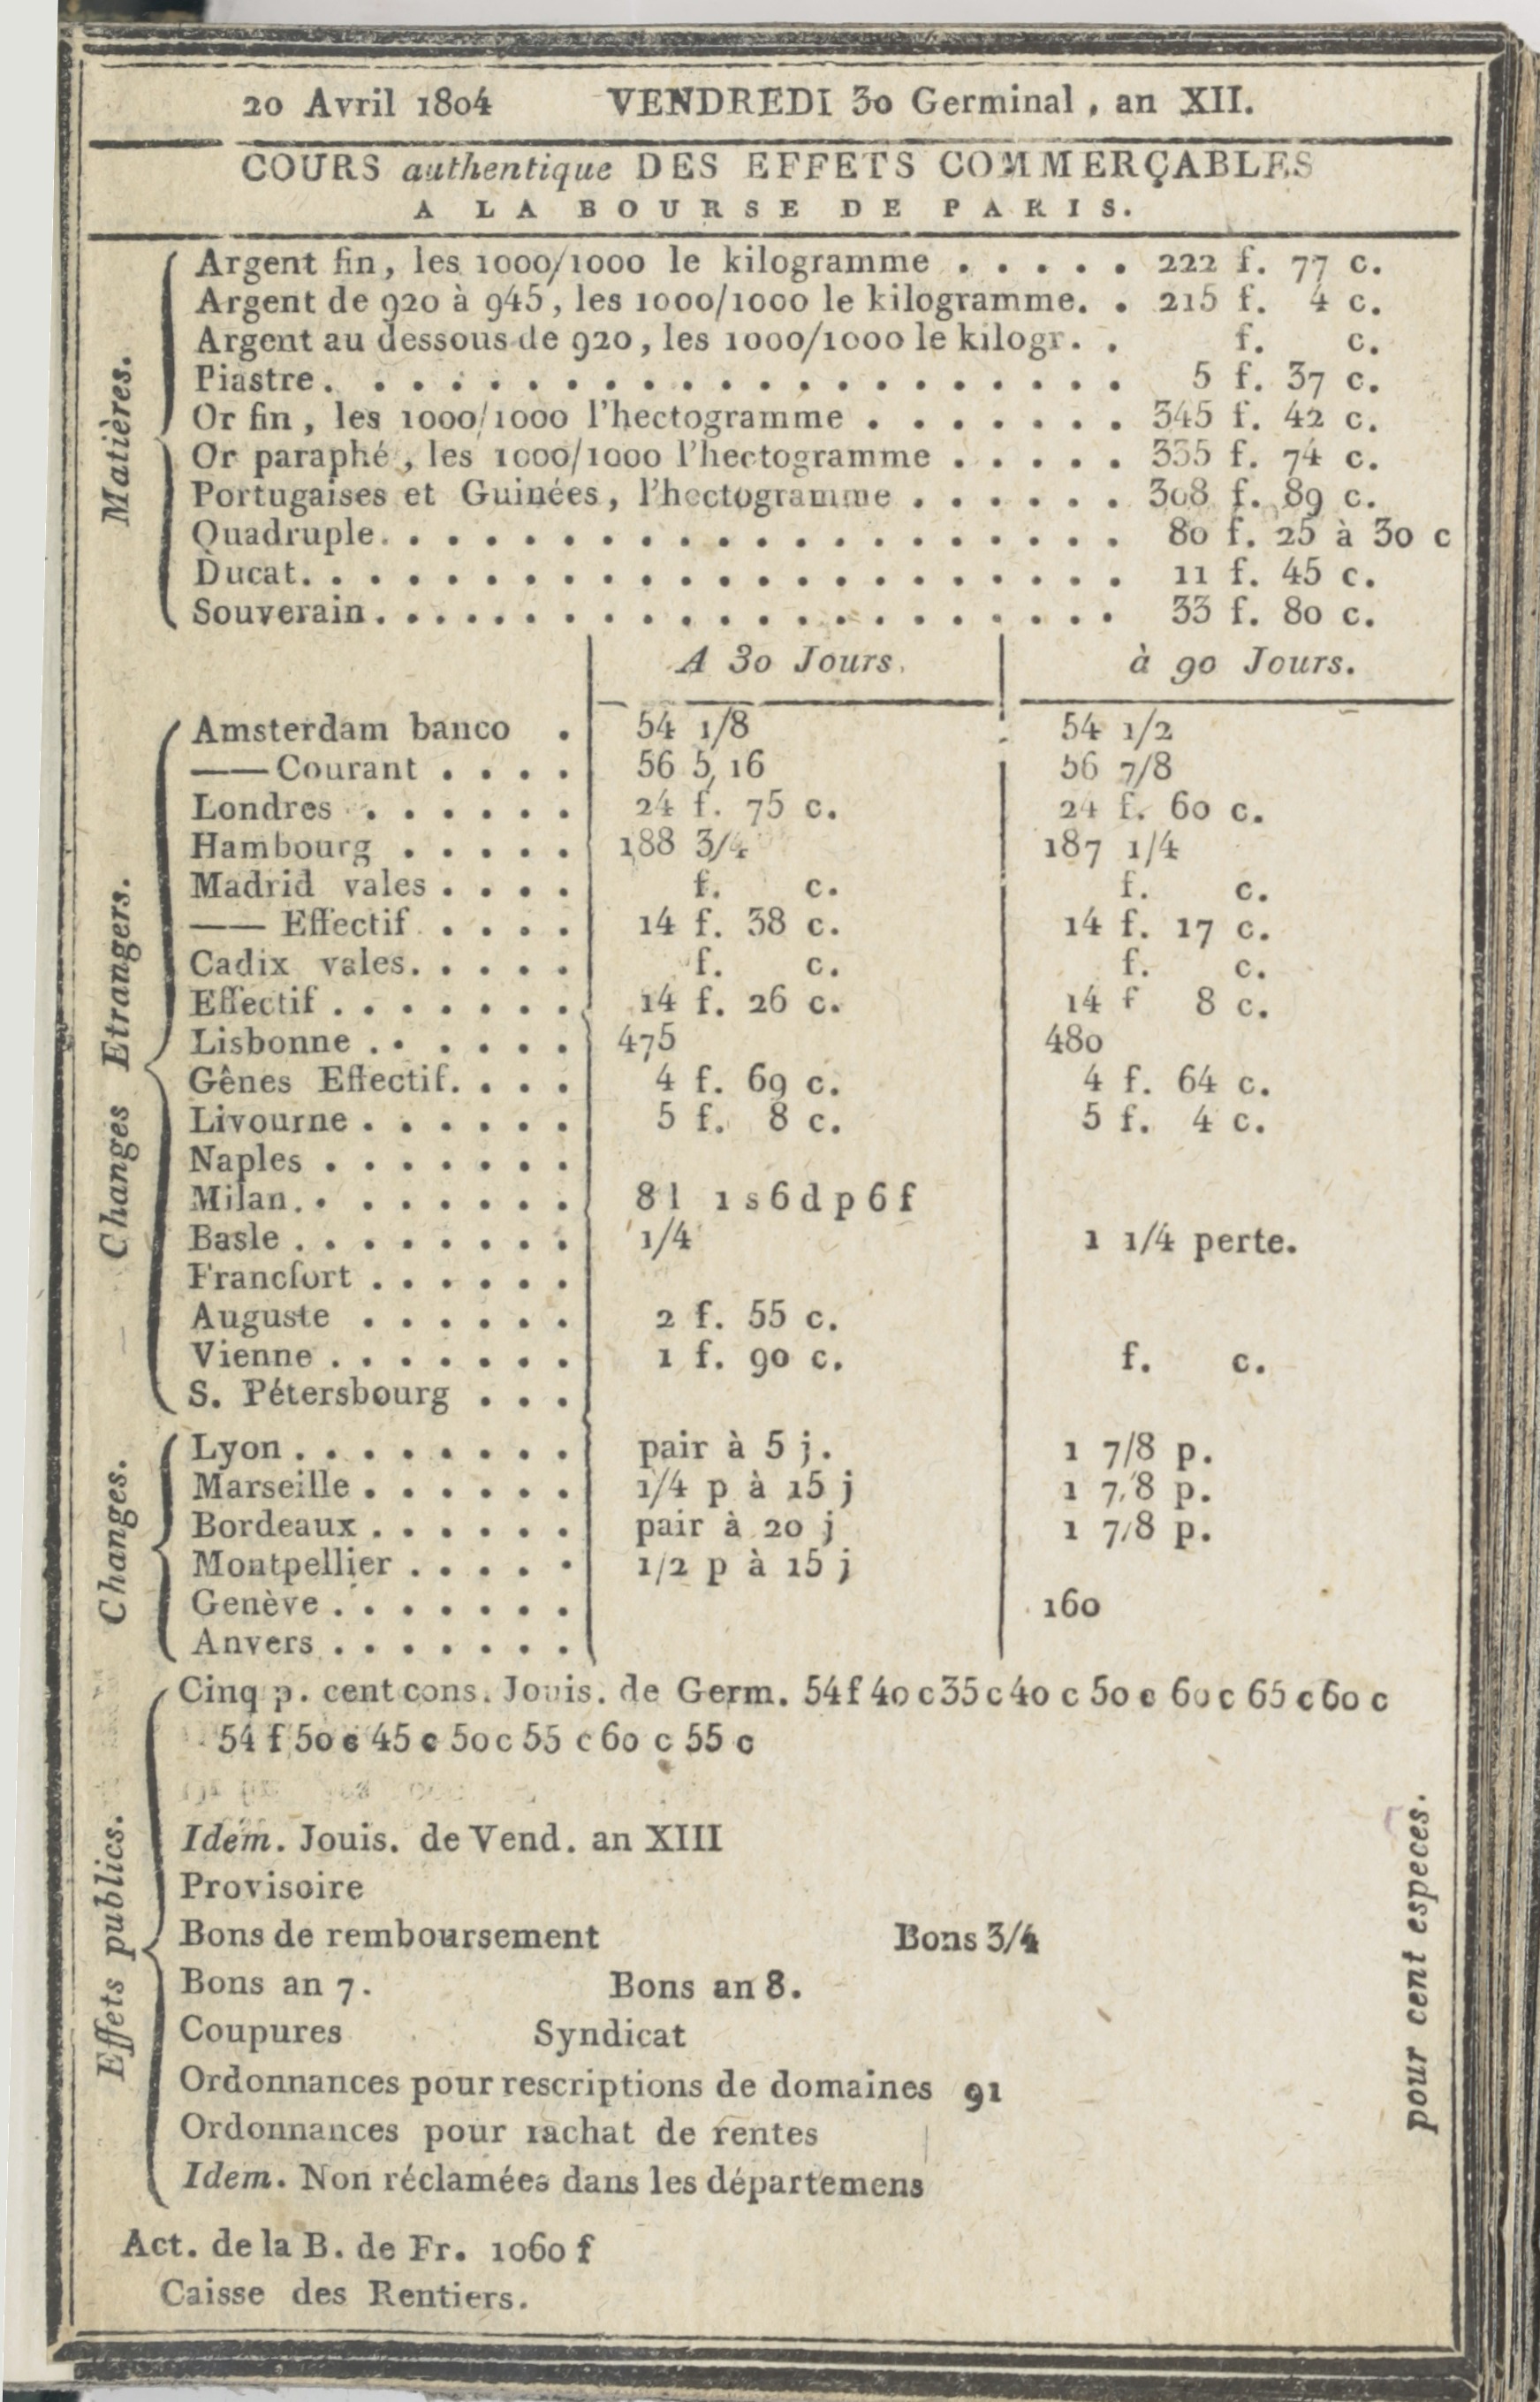 20 Avril 1804 VENDREDI 30 Germinal, an XII.
COURS authentique DES EFFETS COMMERÇABLES
A LA BOURSE DE PARIS.
Matières.
Argent fin, les 1000/1000 le kilogramme . . . . . 222 f. 77 c.
Argent de 920 à 945, les 1000/1000 le kilogramme. . 215 f. 4 c.
Argent au dessous de 920, les 1000/1000 le kilogr. . f. c.
Piastre. . . . . . . . . . . . . . . . . . . . . 5 f. 37 c.
Or fin, les 1000/1000 l'hectogramme . . . . . . . 345 f. 42 c.
Or paraphé, les 1000/1000 l'hectogramme . . . . . 335 f. 74 c.
Portugaises et Guinées, l'hectogramme . . . . . . 308 f. 89 c.
Quadruple. . . . . . . . . . . . . . . . . . . . 80 f. 25 à 30 c
Ducat. . . . . . . . . . . . . . . . . . . . . . 11 f. 45 c.
Souverain. . . . . . . . . . . . . . . . . . . . 33 f. 80 c.
A 30 Jours. à 90 Jours.
Changes Etrangers.
Amsterdam banco . 54 1/8 54 1/2
——Courant . . . . 56 5/16 56 7/8
Londres . . . . . . 24 f. 75 c. 24 f. 60 c.
Hambourg . . . . . 188 3/4 187 1/4
Madrid vales . . . . f. c. f. c.
—— Effectif . . . . 14 f. 38 c. 14 f. 17 c.
Cadix vales. . . . . f. c. f. c.
Effectif . . . . . . . 14 f. 26 c. 14 f 8 c.
Lisbonne . . . . . . 475 480
Gênes Effectif. . . . 4 f. 69 c. 4 f. 64 c.
Livourne . . . . . . 5 f. 8 c. 5 f. 4 c.
Naples . . . . . . .
Milan. . . . . . . . 8 l 1 s 6 d p 6 f
Basle . . . . . . . . 1/4 1 1/4 perte.
Francfort . . . . . .
Auguste . . . . . . 2 f. 55 c.
Vienne . . . . . . . 1 f. 90 c. f. c.
S. Pétersbourg . . .
Changes.
Lyon . . . . . . . . pair à 5 j. 1 7/8 p.
Marseille . . . . . . 1/4 p à 15 j 1 7/8 p.
Bordeaux . . . . . . pair à 20 j 1 7/8 p.
Montpellier . . . . . 1/2 p à 15 j
Genève . . . . . . . 160
Anvers . . . . . . .
Effets publics.
Cinq p. cent cons. Jouis. de Germ. 54 f 40 c 35 c 40 c 50 c 60 c 65 c 60 c
54 f 50 c 45 c 50 c 55 c 60 c 55 c
Idem. Jouis. de Vend. an XIII
Provisoire
Bons de remboursement Bons 3/4
Bons an 7. Bons an 8.
Coupures Syndicat
Ordonnances pour rescriptions de domaines 91
Ordonnances pour rachat de rentes
Idem. Non réclamées dans les départemens
pour cent especes.
Act. de la B. de Fr. 1060 f
Caisse des Rentiers.